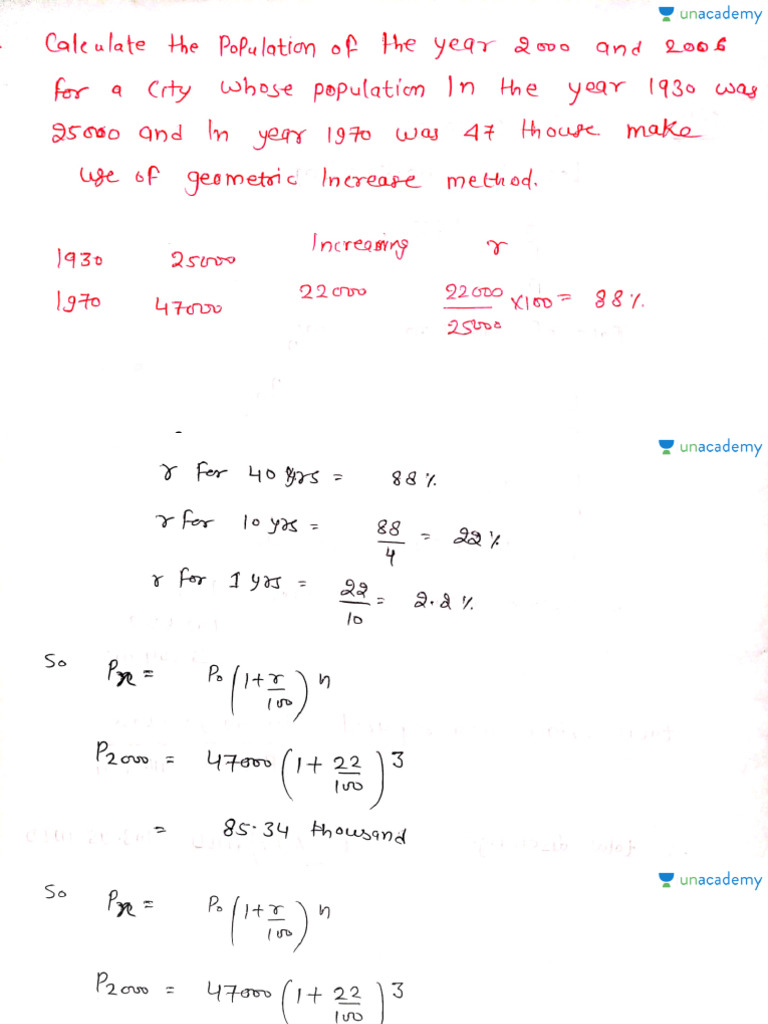 unacademy
Calculate the Population of the year 2000 and 2006
for a City whose population In the year 1930 was
25000 and In year 1970 was 47 thouse make
use of geometric Increase method.
Increasing r
1930 25000
1970 47000 22000 22000/25000 ×100 = 88%.
unacademy
r for 40 yrs = 88%.
r for 10 yrs = 88/4 = 22%
r for 1 yrs = 22/10 = 2.2%.
So Pn = P₀(1+r/100)n
P2000 = 47000(1+22/100)3
= 85.34 thousand
unacademy
So Pn = P₀(1+r/100)n
P2000 = 47000(1+22/100)3